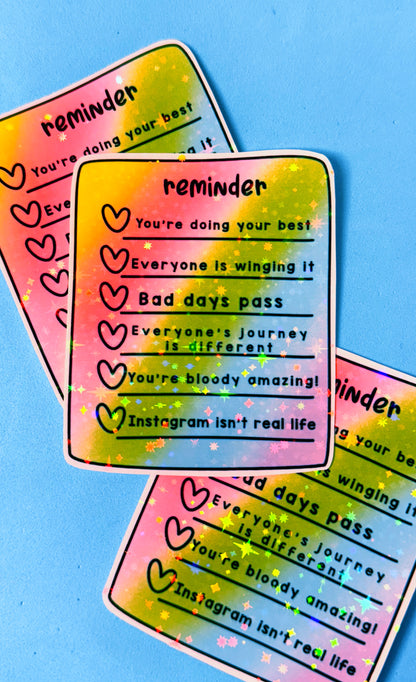 reminder
You're doing your best
ing it
Eve
reminder
You're doing your best
Everyone is winging it
Bad days pass
Everyone's journey
is different
You're bloody amazing!
Instagram isn't real life
minder
ng your best
s winging it
Bad days pass
Everyone's journey
is different
You're bloody amazing!
Instagram isn't real life